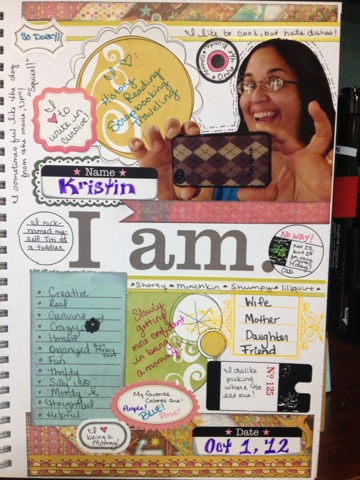 SO Dorky!!
I like to cook, but hate dishes!
I sometimes feel like the dog
from the movie "UP!"
"Squirrel!!"
I ♡:
History
Reading
Scrapbooking
Traveling
I ♡ to
write in
cursive!
Name
Kristin
I nick-
named my-
self Titi as
a toddler.
I am.
NO WAY!
Shorty Munchkin Shwimpy lilsquirt
Creative
Real
Genuine
Crazy
Honest
Organized but messy too!
Fun
Thrifty
Silly
Moody
Thoughtful
Helpful
Slowly
getting
more confident
in being
a mommy
Wife
Mother
Daughter
Friend
I dislike
picking
where we
eat out!
No 125
My favorite
Colors are:
Purple!
BLUE!
Pink!
I ♡
being a
Mommy!
Date
Oct 1, 12